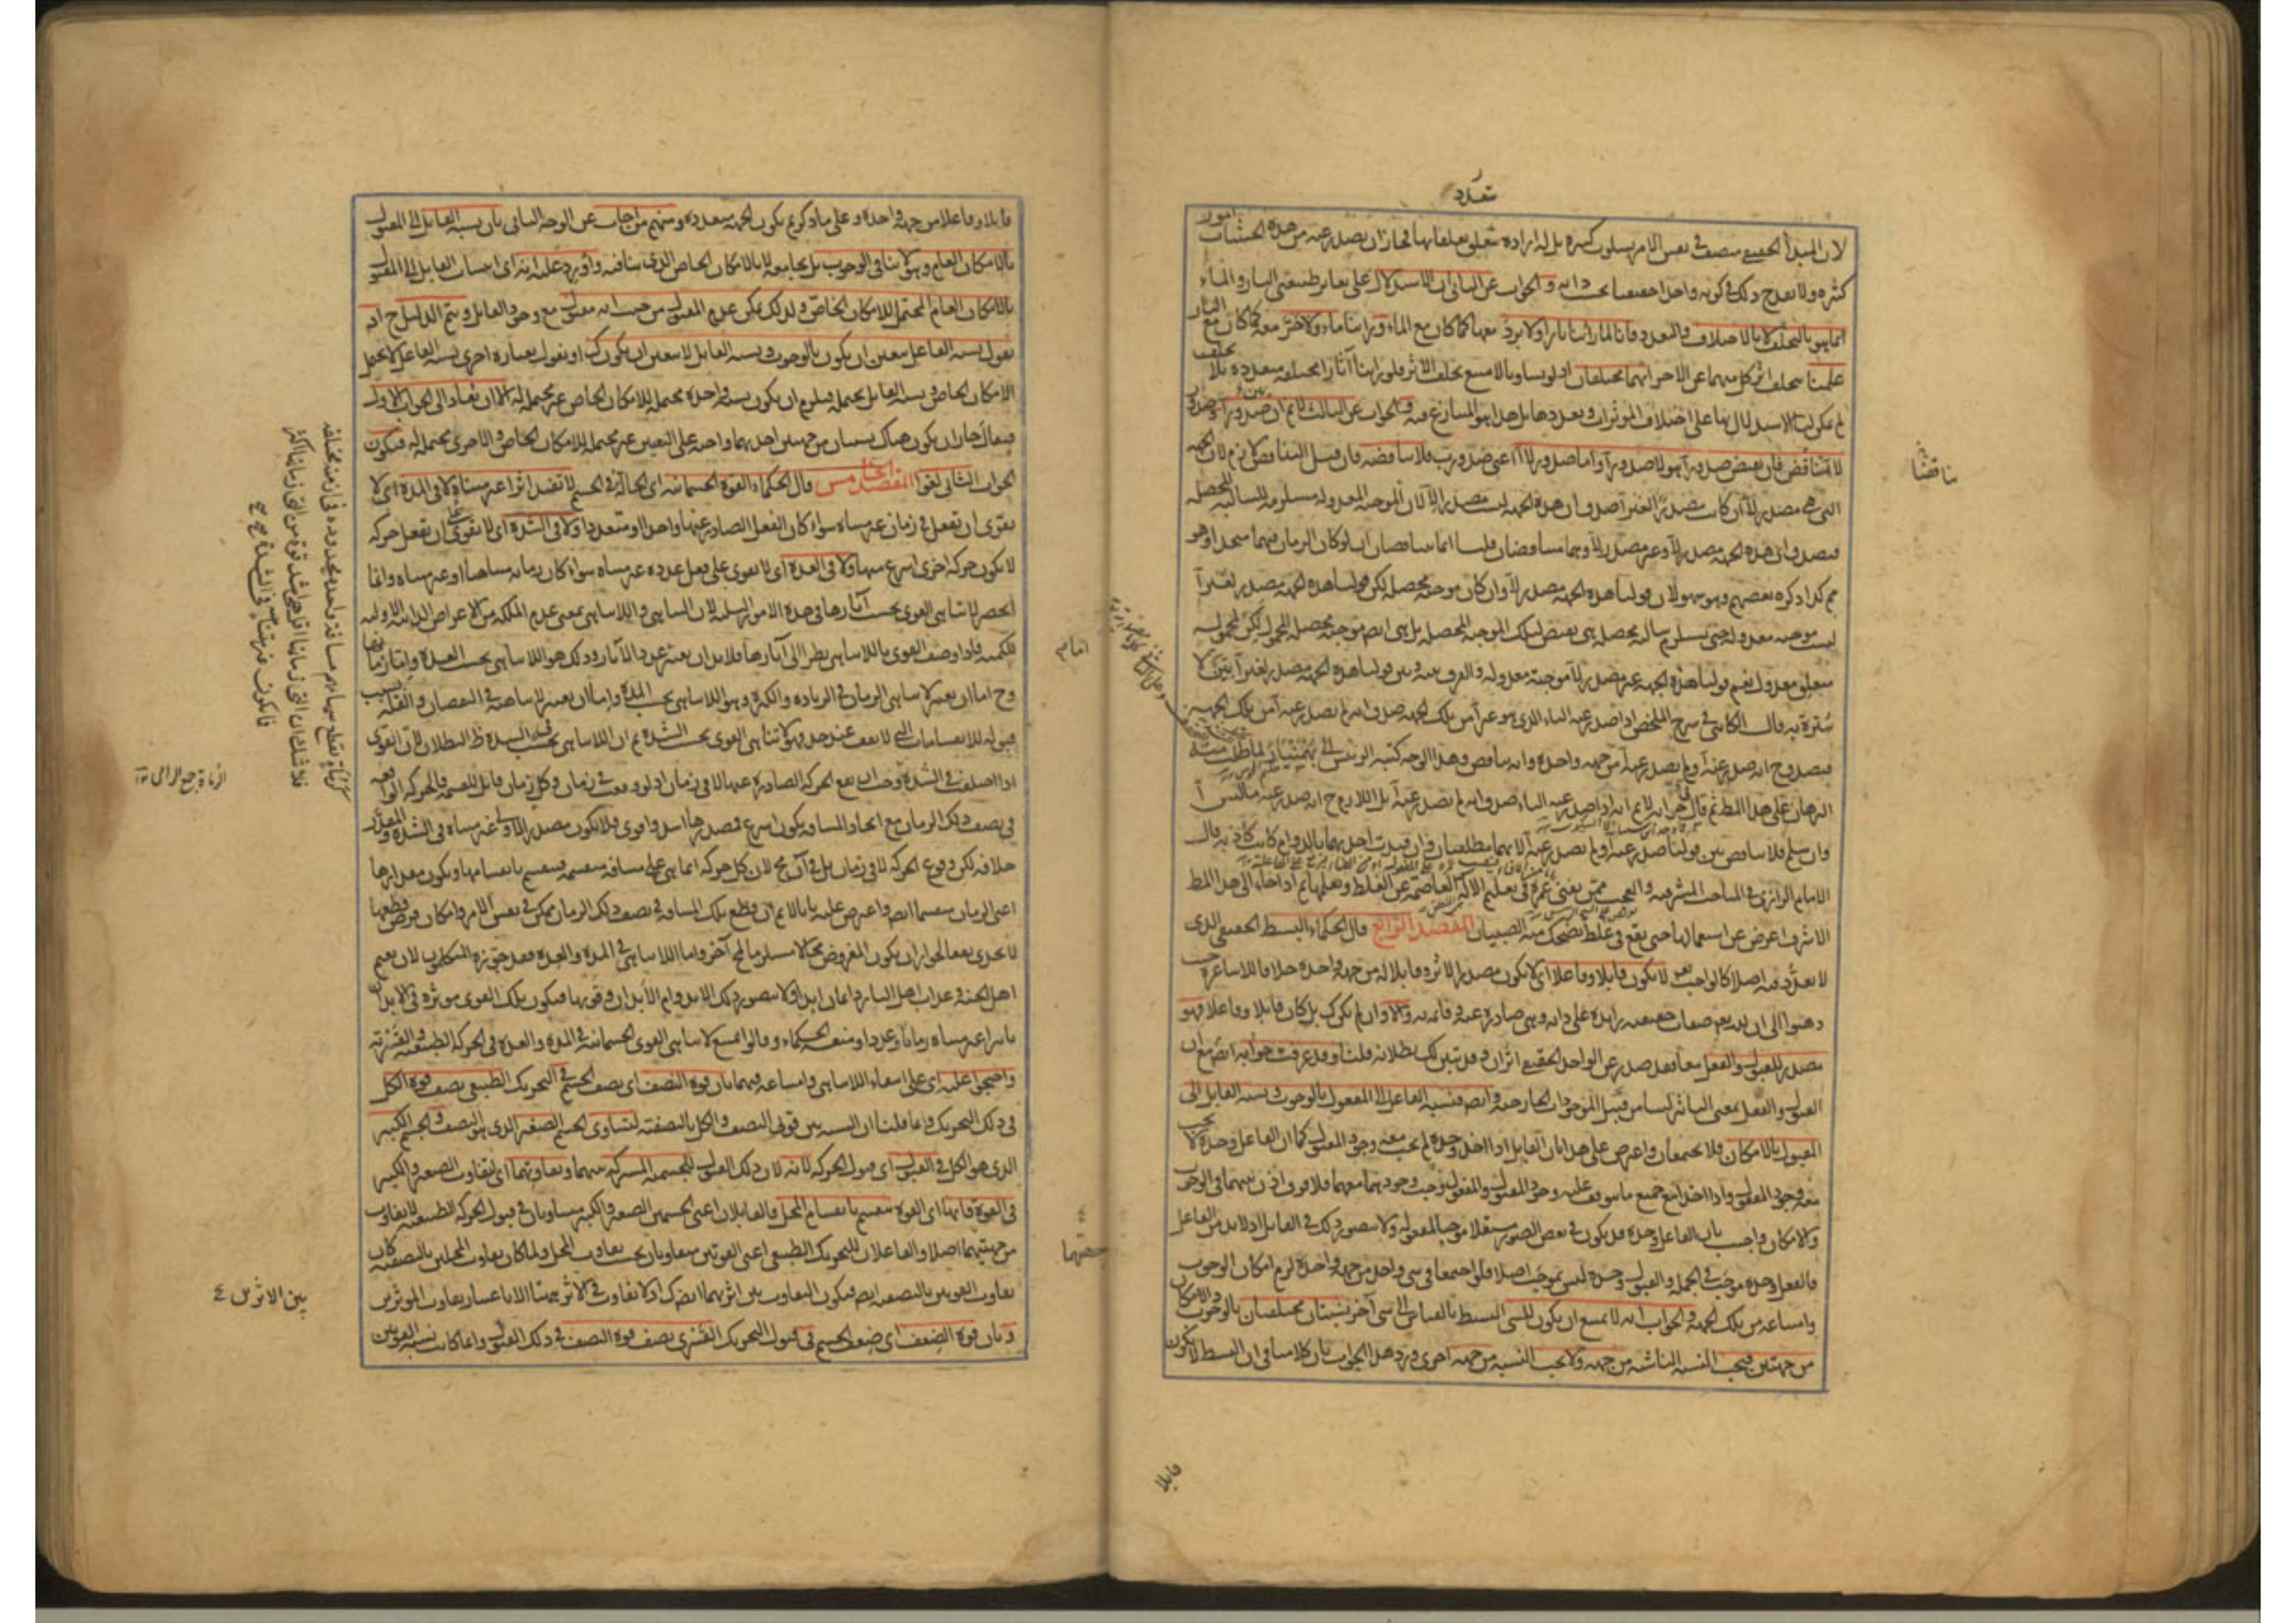 تعدد
لان المبدأ الحقيقي متصف في نفس الامر بسلوب كثيرة بل له ارادة تتعلق تعلقاتها فجاز ان يصدر عنه من هذه الحيثيات امور
كثيرة ولا يقدح ذلك في كونه واحدا حقيقيا بحسب ذاته والجواب عن الثاني ان الاستدلال على تغاير طبيعتي النار والماء
انما هو بالتخلف لا بالاختلاف والتعدد فانا لما رأينا نارا ولا برد معها كما كان مع الماء ورأينا ماء ولا حر معه كما كان مع النار
علمنا بتخلف اثر كل منهما عن الآخر انهما مختلفان اذ لو تساويا لامتنع تخلف الاثر فلو رأينا آثارا مختلفة متعددة بلا تخلف
لم يمكن لنا الاستدلال بها على اختلاف المؤثرات وتعددها بل هذا هو المتنازع فيه والجواب عن الثالث لا نم ان صدور آ وصدور
لا آ تناقض فان نقيض صدور آ هو لا صدور آ واما صدور لا آ اعني صدور ب فلا يناقضه فان قيل التناقض لازم لان الجهة
التي هي مصدر لا آ ان كانت مصدرا لغير آ صدق ان هذه الجهة ليست مصدرا لآ لان الموجبة المعدولة مستلزمة للسالبة المحصلة
فيصدق ان هذه الجهة مصدر لآ وغير مصدر لآ وهما متناقضان قلنا انما يتناقضان ان لو كان الزمان فيهما متحدا وهو
مم كذا ذكره بعضهم وهو سهو لان قولنا هذه الجهة مصدر لا آ وان كان موجبة محصلة لكن قولنا هذه الجهة مصدر لغير آ
ليست موجبة معدولة حتى يستلزم سالبة محصلة هي نقيض لتلك الموجبة المحصلة بل هي ايضا موجبة محصلة المحمول لكن لمحموله
متعلق معدول نعم قولنا هذه الجهة غير مصدر لآ موجبة معدولة والفرق بينه وبين قولنا هذه الجهة مصدر لغير آ بين لا
سترة به قال الكاتبي في شرح الملخص اذا صدر عنه الباء الذي هو غير آ من تلك الجهة صدق انه لم يصدر عنه آ من تلك الجهة
فيصدق ح انه صدر عنه آ ولم يصدر عنه آ من جهة واحدة وانه تناقض وهذا الوجه كتبه الرئيس الى بهمنيار لما طلب منه
البرهان على هذا المط ثم قال جوابه لا نم انه اذا صدر عنه الباء صدق انه لم يصدر عنه آ بل اللازم ح انه صدر عنه ما ليس آ
وان سلم فلا تناقض بين قولنا صدر عنه آ ولم يصدر عنه آ لانهما مطلقتان وان قيدت احديهما بالدوام كانت كاذبة قال
الامام الرازي في المباحث المشرقية والعجب ممن يفني عمره في تعليم الآلة العاصمة عن الغلط وتعلمها ثم اذا جاء الى هذا المط
الاشرف اعرض عن استعمالها حتى يقع في غلط يضحك منه الصبيان المقصد الرابع قال الحكماء البسيط الحقيقي الذي
لا تعدد فيه اصلا كالواجب تعالى لا يكون قابلا وفاعلا اي لا يكون مصدرا لاثر وقابلا له من جهة واحدة خلافا للاشاعرة حيث
ذهبوا الى ان لله تعالى صفات حقيقية زايدة على ذاته وهي صادرة عنه وقائمة به والا وان لم يكن كك بل كان قابلا وفاعلا فهو
مصدر للقبول والفعل معا فقد صدر عن الواحد الحقيقي اثران وقد تبين لك بطلانه قلنا وقد عرفت جوابه ايضا مع ان
القبول والفعل بمعنى التأثير ليسا من قبيل الموجودات الخارجية وايضا فنسبة الفاعل الى المفعول بالوجوب ونسبة القابل الى
المقبول بالامكان فلا تجتمعان واعترض على هذا بان القابل اذا اخذ وحده لم يجب معه وجود المقبول كما ان الفاعل وحده لا يجب
معه وجود المفعول واذا اخذا مع جميع ما يتوقف عليه وجود المقبول والمفعول وجب وجودهما معهما فلا فرق اذن بينهما في الوجوب
والامكان واجيب بان الفاعل وحده قد يكون في بعض الصور مستقلا موجبا لمفعوله ولا يتصور ذلك في القابل اذ لا بد من الفاعل
فالفعل وحده موجب في الجملة والقبول وحده ليس بموجب اصلا فلو اجتمعا في شيء واحد من جهة واحدة لزم امكان الوجوب
وامتناعه من تلك الجهة والجواب انه لا يمتنع ان يكون للشيء البسيط بالقياس الى شيء آخر نسبتان مختلفتان بالوجوب والامكان
من جهتين فيجب النسبة الناشئة من جهة ولا يجب النسبة من جهة اخرى ورد هذا الجواب بان كلامنا في ان البسيط لا يكون
قابلا
ناقضا
قابلا وفاعلا من جهة واحدة وعلى ما ذكرتم يكون الجهة متعددة ومنهم من اجاب عن الوجه الثاني بان نسبة القابل الى المقبول
بالامكان العام وهو لا ينافي الوجوب بل يجامعه لا بالامكان الخاص الذي ينافيه واورد عليه انه اي انتساب القابل الى المقبول
بالامكان العام المحتمل للامكان الخاص ولذلك يمكن عدم المقبول من حيث انه مقبول مع وجود القابل ويتم الدليل ح اذ
نقول نسبة الفاعل يتعين ان يكون بالوجوب ونسبة القابل لا يتعين ان يكون كك او نقول بعبارة اخرى نسبة الفاعل لا يحتمل
الامكان الخاص ونسبة القابل يحتمله فيلزم ان يكون نسبة واحدة محتملة للامكان الخاص غير محتملة له الا ان يعاد الى الجواب الاول
فيقال جاز ان يكون هناك نسبتان من جهتين احديهما واجبة على التعيين غير محتملة للامكان الخاص والاخرى محتملة له فيكون
الجواب الثاني لغوا المقصد الخامس قال الحكماء القوة الجسمانية اي الحالة في الجسم لا تفيد اثرا غير متناه لا في المدة اي لا
تقوى ان تفعل في زمان غير متناه سواء كان الفعل الصادر عنها واحدا او متعددا ولا في الشدة اي لا تقوى ان تفعل حركة
لا يكون حركة اخرى اسرع منها ولا في العدة اي لا تقوى على فعل عدده غير متناه سواء كان زمانه متناهيا او غير متناه وانما
انحصر لا تناهي القوى بحسب آثارها في هذه الامور الثلثة لان التناهي واللاتناهي بمعنى عدم الملكة من الاعراض الذاتية الاولية
للكمية فاذا وصف القوى باللاتناهي نظرا الى آثارها فلا بد ان يعتبر عدد الآثار وذلك هو اللاتناهي بحسب العدة واما زمانها
وح اما ان يعتبر لا تناهي الزمان في الزيادة والكثرة وهو اللاتناهي بحسب المدة واما ان يعتبر لا تناهيه في النقصان والقلة بسبب
قبوله للانقسامات التي لا تقف عند حد فهو لا تناهي القوى بحسب الشدة ثم ان اللاتناهي بحسب الشدة ظ البطلان لان القوى
اذا اختلفت في الشدة وجب ان تقع الحركة الصادرة عنها لا في زمان اذ لو وقعت في زمان وكل زمان قابل للقسمة فالحركة الواقعة
في نصف ذلك الزمان مع اتحاد المسافة يكون اسرع فمصدرها اشد واقوى فلا يكون مصدر الاولى غير متناه في الشدة والمقدر
خلافه لكن وقوع الحركة لا في زمان بل في آن مح لان كل حركة انما هي على مسافة منقسمة فينقسم بانقسامها ويكون مقدارها
اعني الزمان منقسما ايضا واعترض عليه بانا لا نم ان قطع تلك المسافة في نصف ذلك الزمان ممكن في نفس الامر وامكان فرض قطعها
لا يجدي نفعا لجواز ان يكون المفروض محالا مستلزما لمح آخر واما اللاتناهي في المدة والعدة فقد جوزه المتكلمون لان نعيم
اهل الجنة وعذاب اهل النار دائمان ابدا ولا يتصور ذلك الا بدوام الابدان وقويها فيكون تلك القوى مؤثرة في الابدان
تأثيرا غير متناه زمانا وعددا ومنعه الحكماء وقالوا يمتنع لا تناهي القوى الجسمانية في المدة والعدة في الحركة الطبيعية والقسرية
واحتجوا عليه اي على انتفاء اللاتناهي وامتناعه فيهما بان قوة النصف اي نصف الجسم في التحريك الطبيعي نصف قوة الكل
في ذلك التحريك وانما قلنا ان النسبة بين قوتي النصف والكل بالنصفية لتساوي الجسم الصغير الذي هو النصف والجسم الكبير
الذي هو الكل في القبول اي قبول الحركة لانه لان ذلك القبول للجسمية المشتركة بينهما وتفاوتهما اي تفاوت الصغير والكبير
في القوة فانها اي القوة تنقسم بانقسام المحل فالقابلان اعني الجسمين الصغير والكبير متساويان في قبول الحركة الطبيعية لا تفاوت
من جهتيهما اصلا والفاعلان للتحريك الطبيعي اعني القوتين متفاوتان بحسب تفاوت المحل ولما كان تفاوت المحلين بالنصفية كان
تفاوت القوتين بالنصفية ايضا فيكون التفاوت بين اثريهما ايضا كك اذ لا تفاوت في الاثر ههنا الا باعتبار تفاوت المؤثرين
وبان قوة الضعف اي ضعف الجسم في قبول التحريك القسري نصف قوة النصف في ذلك القبول وانما كانت نسبة القوتين
امام
جهتهما
بين الاثرين